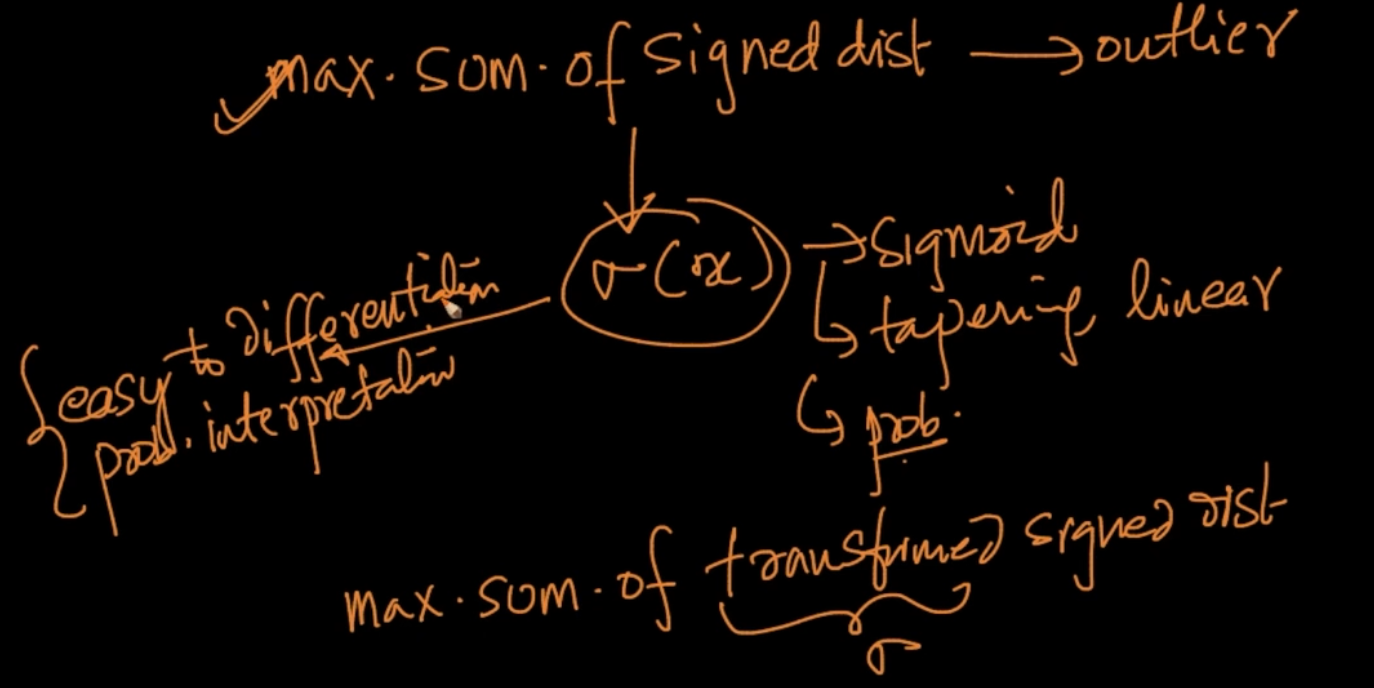 max. sum. of signed dist → outlier
σ(x) → sigmoid
↳ tapering, linear
↳ prob.
{ easy to differentiation
prob. interpretation
max. sum. of transformed signed dist
σ